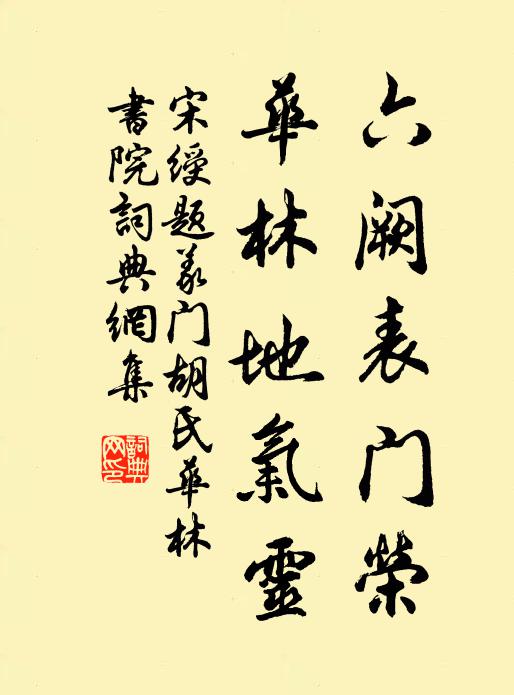 六阙表门榮
華林地氣靈
宋綬题義门胡氏華林
書院詞典網集
詞典网印